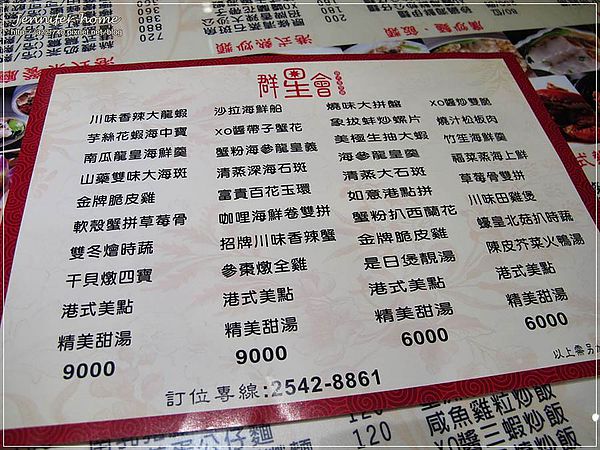 Jennifer-home
800
720
390
350
港式熱炒類
群星會
川味香辣大龍蝦
芋絲花蝦海中寶
南瓜龍皇海鮮羹
山藥雙味大海斑
金牌脆皮雞
軟殼蟹拼草莓骨
雙冬燴時蔬
干貝燉四寶
港式美點
精美甜湯
9000
沙拉海鮮船
XO醬帶子蟹花
蟹粉海參龍皇羹
清蒸深海石斑
富貴百花玉環
咖哩海鮮卷雙拼
招牌川味香辣蟹
參棗燉全雞
港式美點
精美甜湯
9000
燒味大拼盤
象拔蚌炒螺片
美極生抽大蝦
海參龍皇羹
清蒸大石斑
如意港點拼
蟹粉扒西蘭花
金牌脆皮雞
是日煲靚湯
港式美點
精美甜湯
6000
XO醬炒雙脆
燒汁松板肉
竹笙海鮮羹
福菜蒸海上鮮
草莓骨雙拼
川味田雞煲
蠔皇北菇扒時蔬
陳皮芥菜火鴨湯
港式美點
精美甜湯
6000
以上需另加
訂位專線:2542-8861
120
120
鹹魚雞粒炒飯
XO醬三蝦炒飯